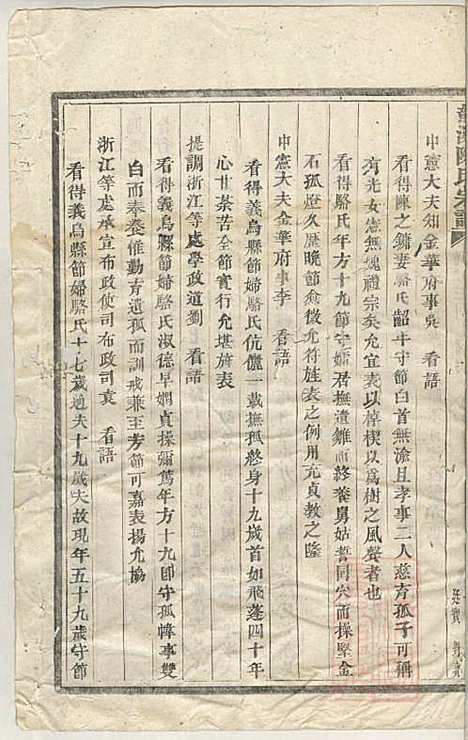 中憲大夫知金華府事吳　看語
看得陳之鏞妻駱氏韶年守節白首無渝且孝事二人慈育孤子可稱
有光女憲無愧禮宗矣允宜表以棹楔以爲樹之風聲者也
看得駱氏年方十九節守孀居撫遺雛而終養舅姑誓同穴而操堅金
石孤燈久歷晚節愈徵允符旌表之例用充貞教之隆
中憲大夫金華府事李　看語
看得義烏縣節婦駱氏伉儷一載撫孤終身十九歲首如飛蓬四十年
心甘荼苦全節實行允堪旌表
提調浙江等處學政道劉　看語
看得義烏縣節婦駱氏淑德早嫻貞操彌篤年方十九卽守孤幃事雙
白而奉養惟勤育遺孤而訓戒兼至芳節可嘉表揚允協
浙江等處承宣布政使司布政司袁　看語
看得義烏縣節婦駱氏十七歲適夫十九歲夫故現年五十九歲守節